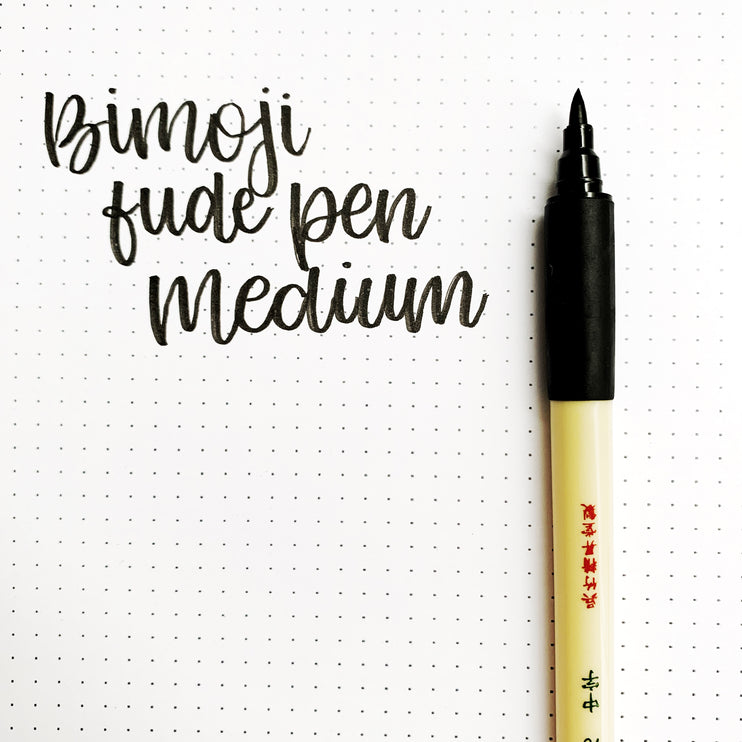 Bimoji
fude pen
medium
呉竹精昇堂製
中字